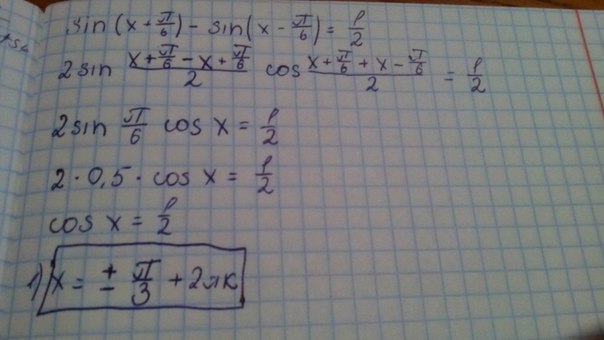 sin(x+π/6) - sin(x-π/6) = 1/2
2sin (x+π/6-x+π/6)/2 cos (x+π/6+x-π/6)/2 = 1/2
2sin π/6 cos x = 1/2
2·0,5·cos x = 1/2
cos x = 1/2
1) x = ± π/3 + 2πк